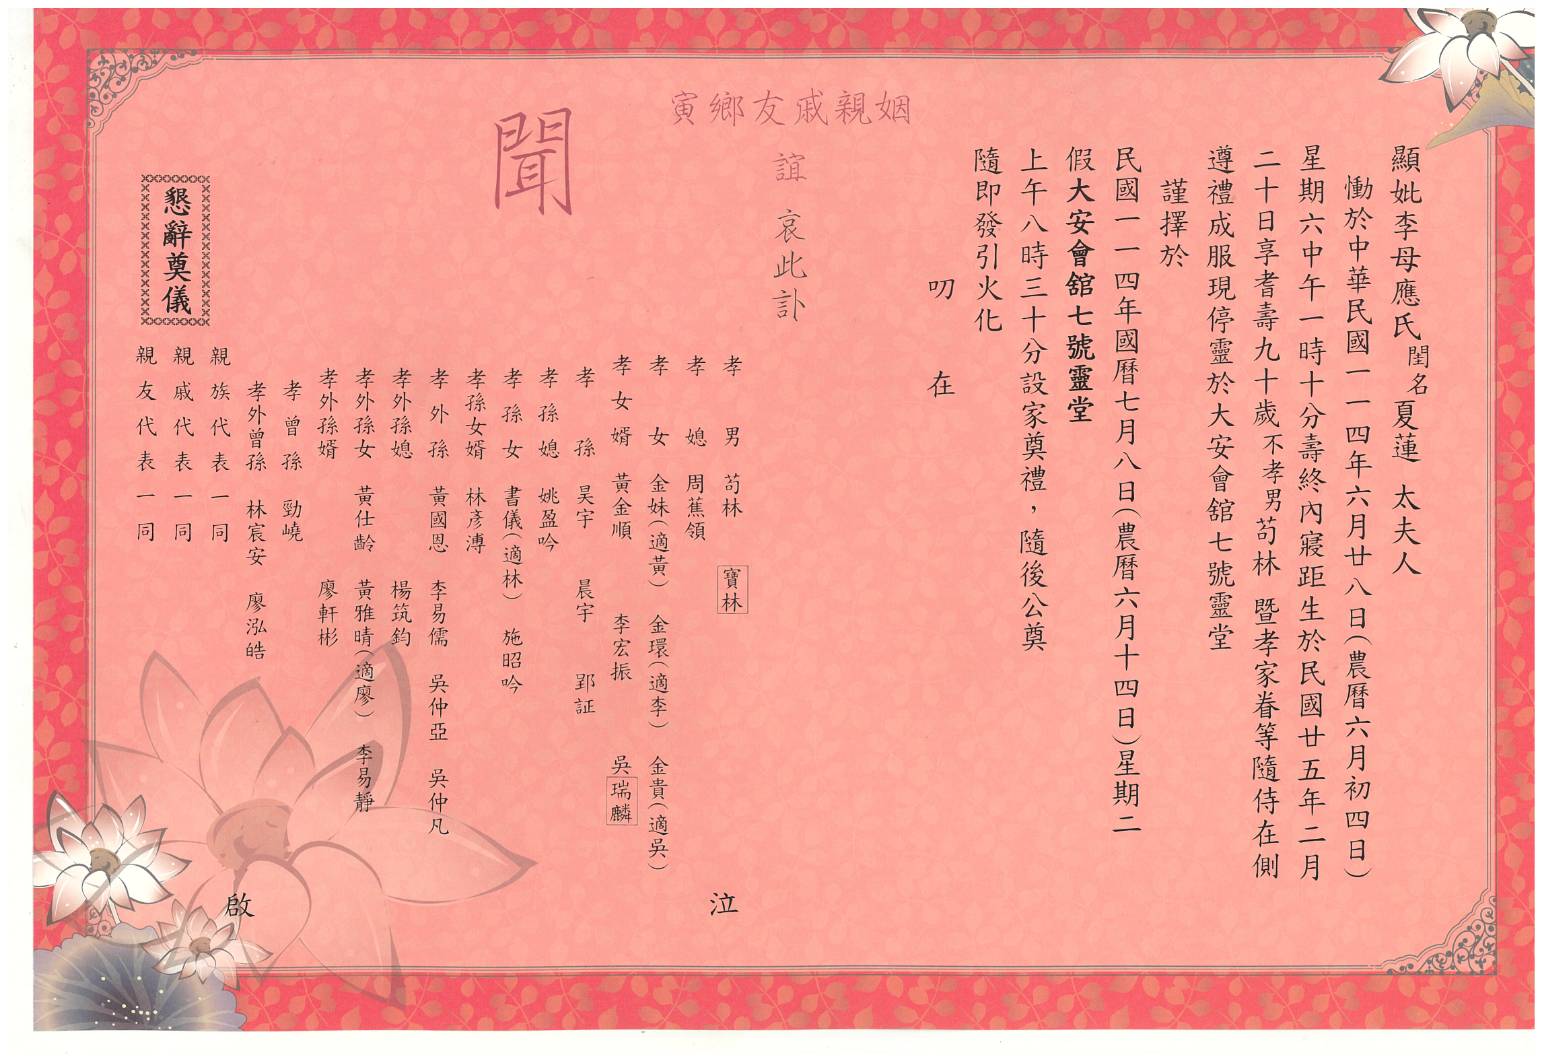 顯妣李母應氏閨名夏蓮 太夫人
慟於中華民國一一四年六月廿八日(農曆六月初四日)
星期六中午一時十分壽終內寢距生於民國廿五年二月
二十日享耆壽九十歲不孝男苟林 暨孝家眷等隨侍在側
遵禮成服現停靈於大安會舘七號靈堂
謹擇於
民國一一四年國曆七月八日(農曆六月十四日)星期二
假大安會舘七號靈堂
上午八時三十分設家奠禮,隨後公奠
隨即發引火化
叨 在
寅鄉友戚親姻
誼 哀此訃
聞
孝男 苟林 寶林
孝媳 周蕉領
孝女 金妹(適黃) 金環(適李) 金貴(適吳)
孝女婿 黃金順 李宏振 吳瑞麟
孝孫 昊宇 晨宇 郢証
孝孫媳 姚盈吟
孝孫女 書儀(適林) 施昭吟
孝孫女婿 林彥溥
孝外孫 黃國恩 李易儒 吳仲亞 吳仲凡
孝外孫媳 楊筑鈞
孝外孫女 黃仕齡 黃雅晴(適廖) 李易靜
孝外孫婿 廖軒彬
孝曾孫 勁嶢
孝外曾孫 林宸安 廖泓皓
親族代表一同
親戚代表一同
親友代表一同
泣
啟
懇辭奠儀